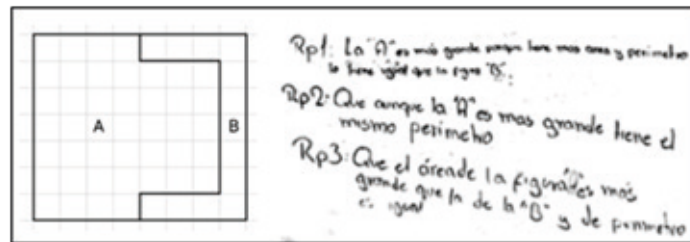 A
B
Rp1: La "A" es más grande porque tiene mas area y perimetro
lo tiene igual que la figura "B".
Rp2: Que aunque la "A" es mas grande tiene el
mismo perimetro
Rp3: Que el área de la figura "A" es más
grande que la de la "B" y de perimetro
es igual